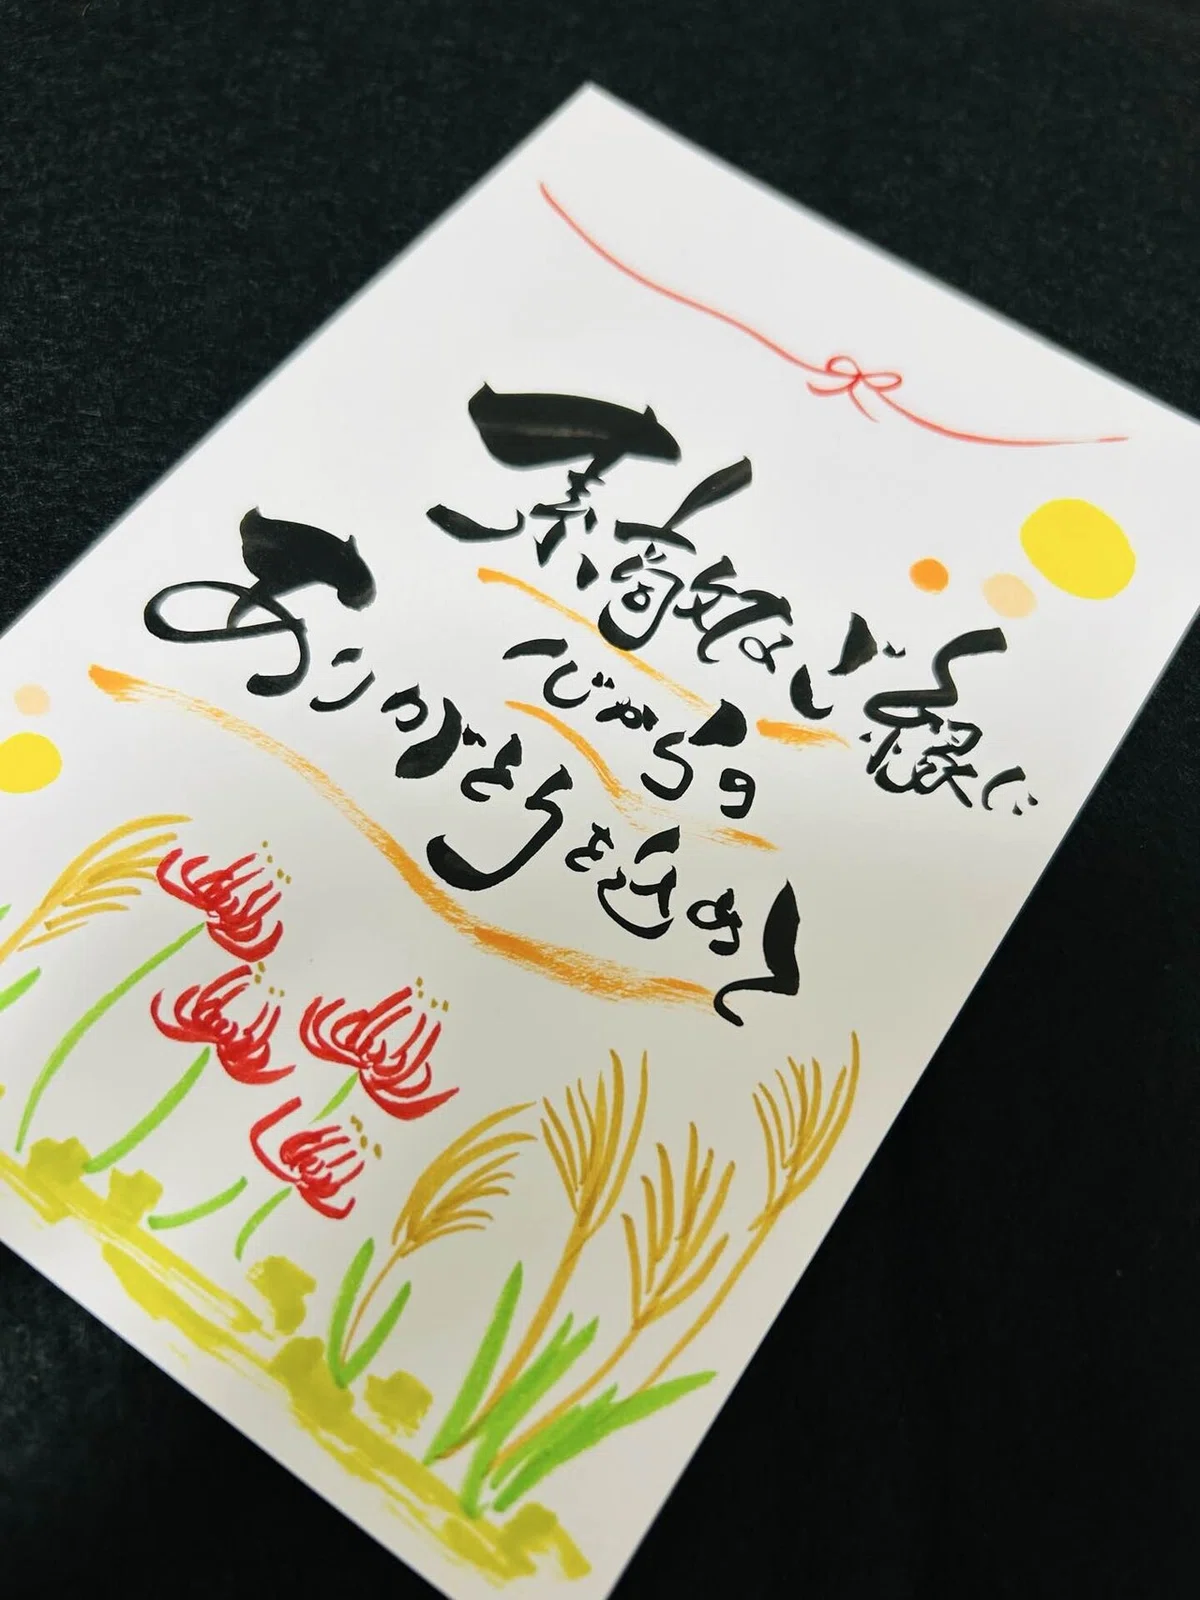 素敵なご縁に
心からの
ありがとうを込めて